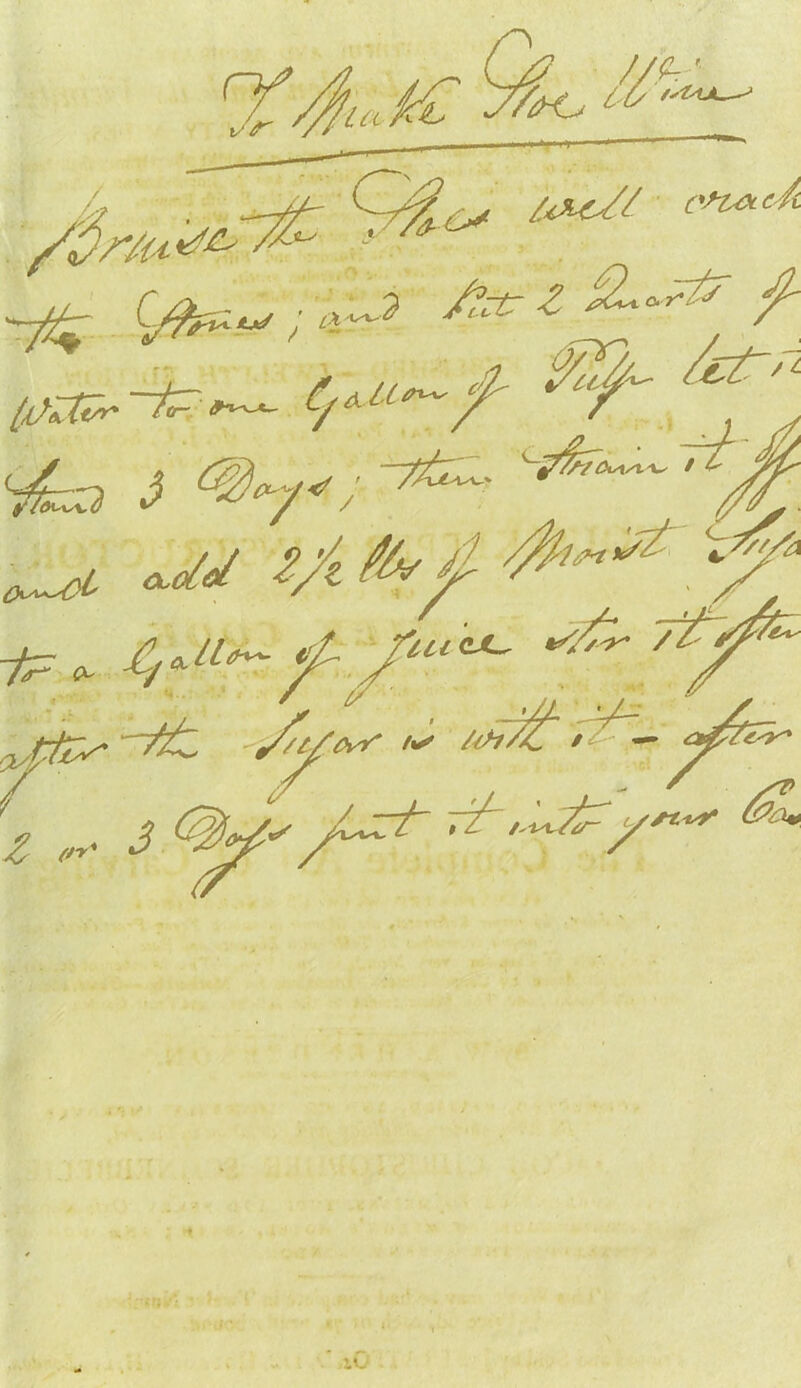 To Make Sloe Wine
Bruise the Sloes well crack
the Stones; and Put 2 Quarts of
Water to one Gallon of Pulp let it
Stand 3 Days; then Strain it off
and add 2½ lbs of Moist Suga
to a Gallon of Juice stir it often
after the Sugar is with it - after
2 or 3 Days put it into your Cas